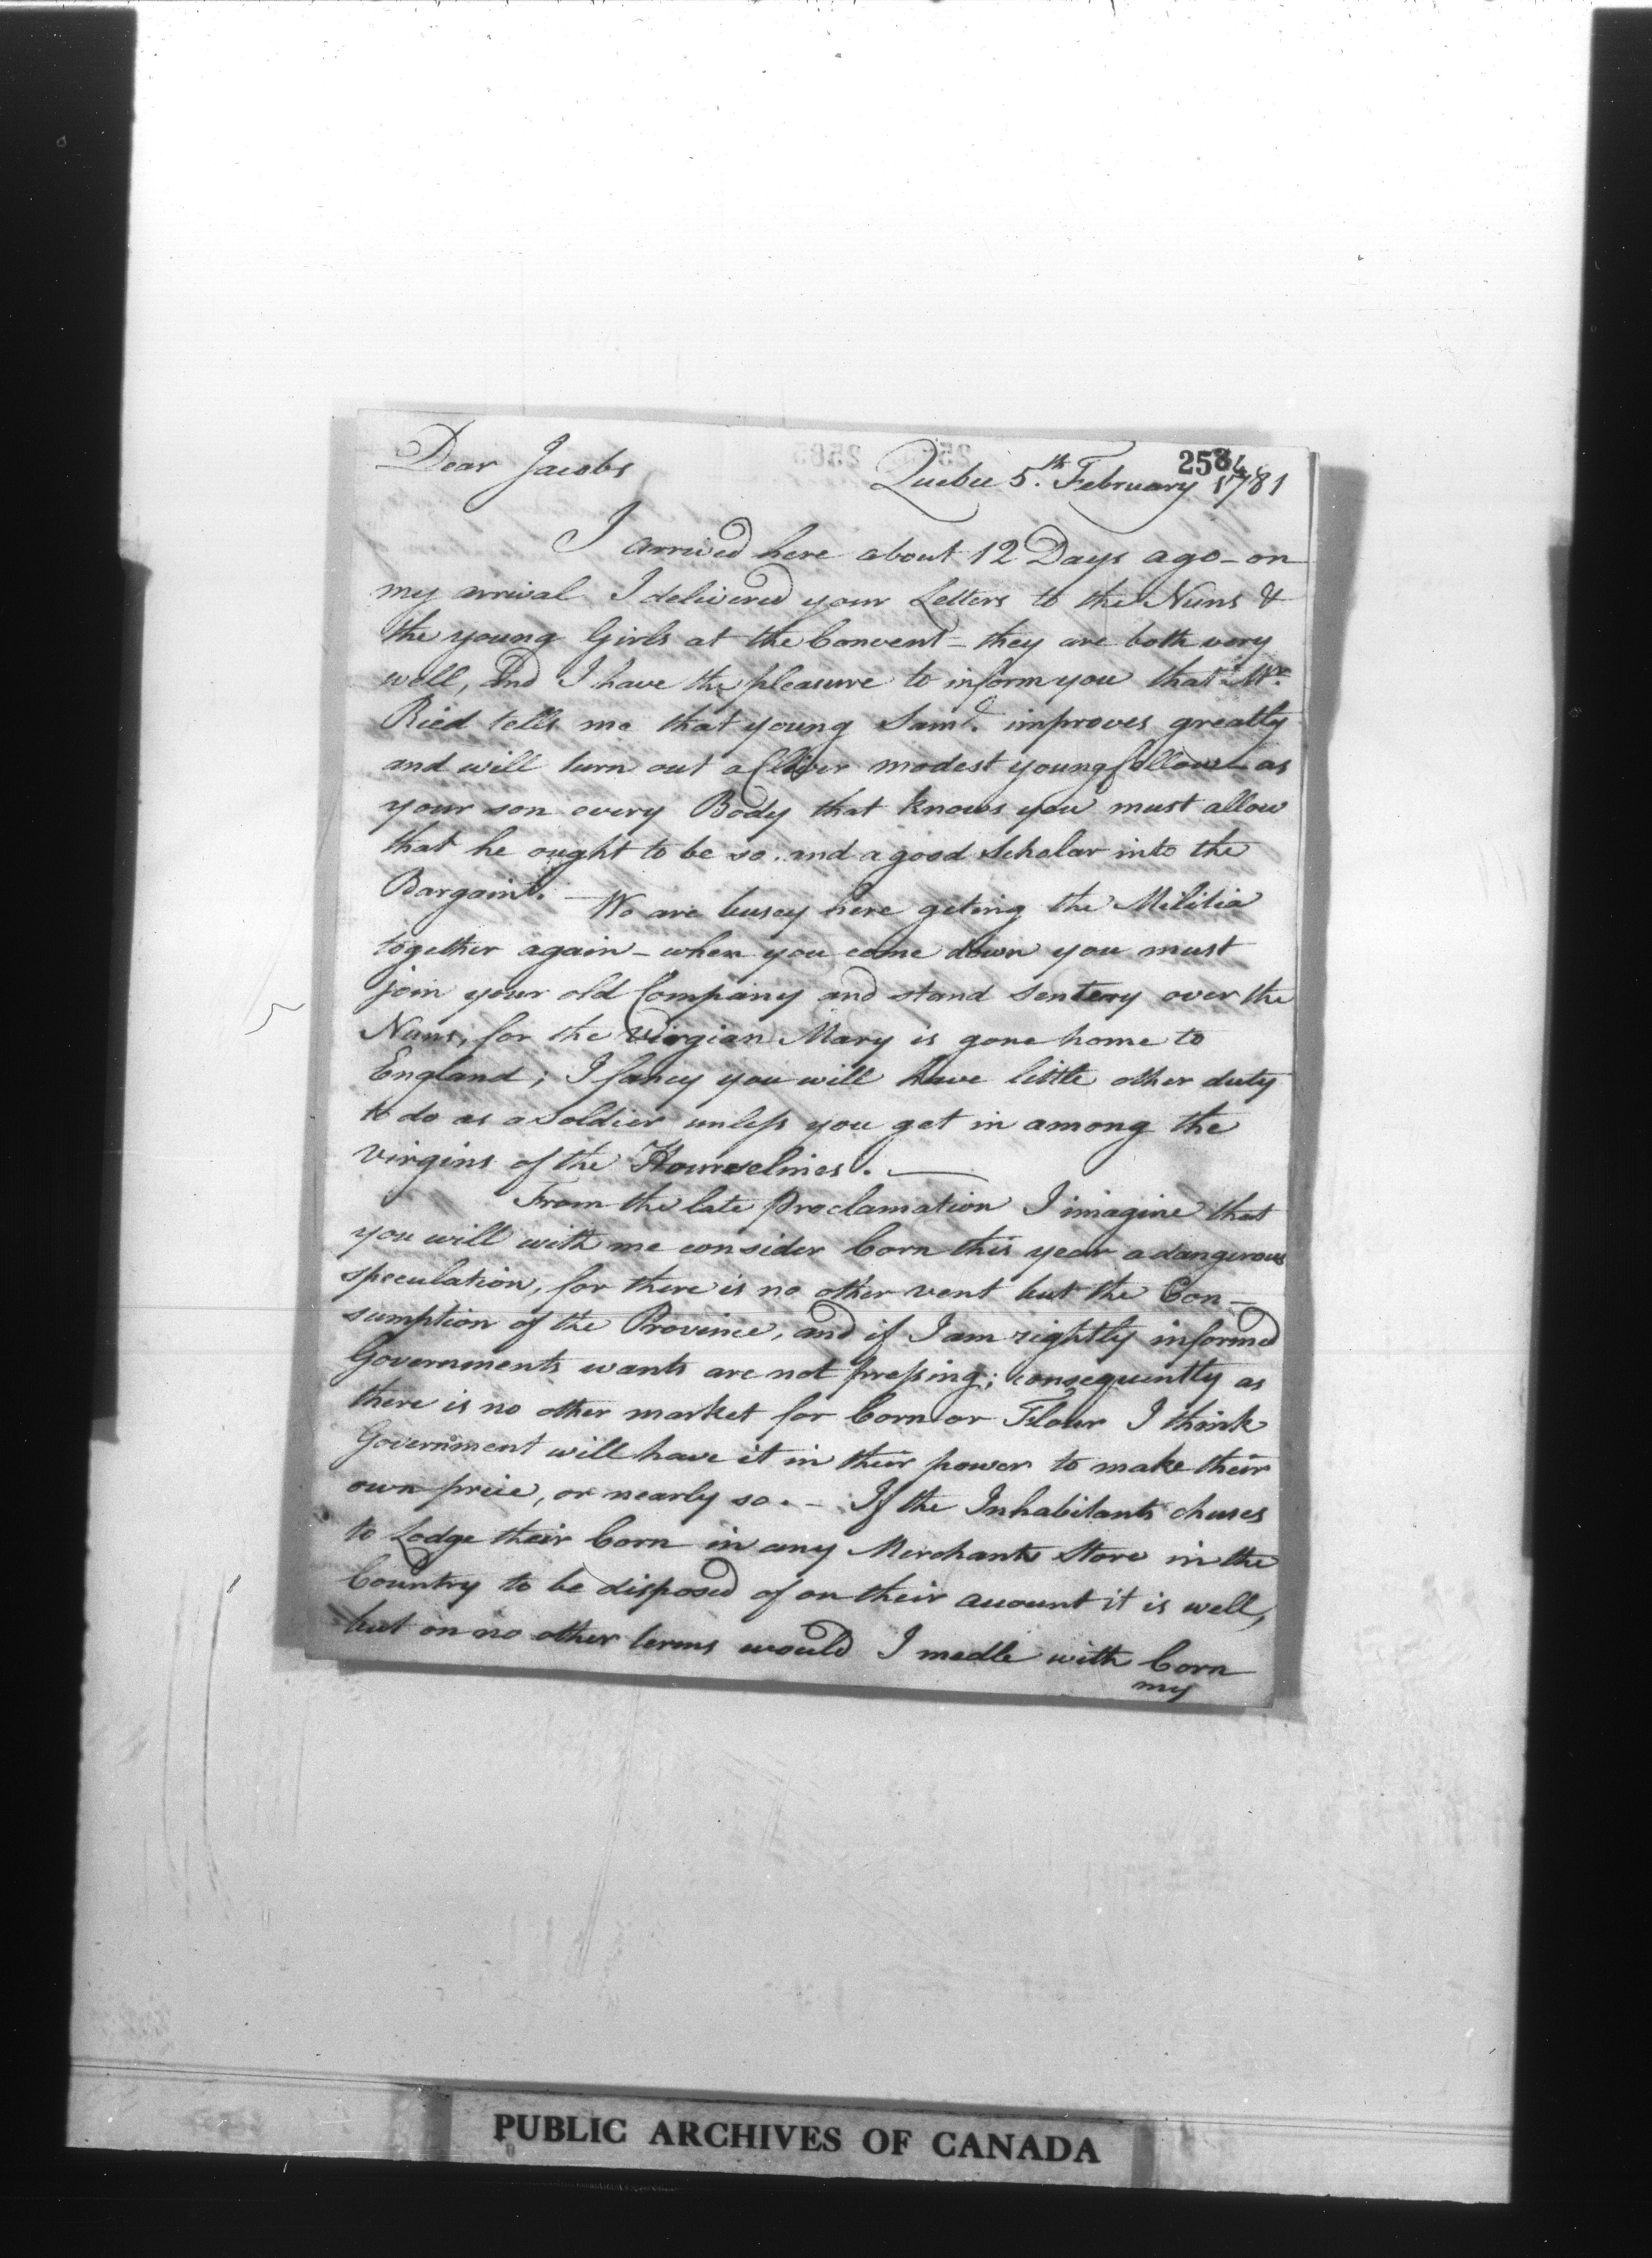 2584
Dear Jacobs
Quebec 5th. February 1781
I arrived here about 12 Days ago - on
my arrival I delivered your Letters to the Nuns &
the young Girls at the Convent - they are both very
well, and I have the pleasure to inform you that Mr.
Ried tells me that young Saml. improves greatly
and will turn out a Clever modest young fellow - as
your son every Body that knows you must allow
that he ought to be so. and a good Scholar into the
Bargaint. - We are busey here geting the Militia
together again - when you come down you must
join your old Company and stand Sentery over the
Nuns, for the Virgian Mary is gone home to
England; I fancy you will have little other duty
to do as a soldier unless you get in among the
virgins of the Hourselines. -
From the late Proclamation I imagine that
you will with me consider Corn this year a dangerous
speculation, for there is no other vent but the Con-
sumption of the Province, and if I am rightly informed
Governments wants are not pressing; consequently as
there is no other market for Corn or Flour I think
Government will have it in their power to make their
own price, or nearly so. - If the Inhabitants chuses
to Lodge their Corn in any Merchants Store in the
Country to be disposed of on their account it is well,
but on no other terms would I medle with Corn
my
PUBLIC ARCHIVES OF CANADA